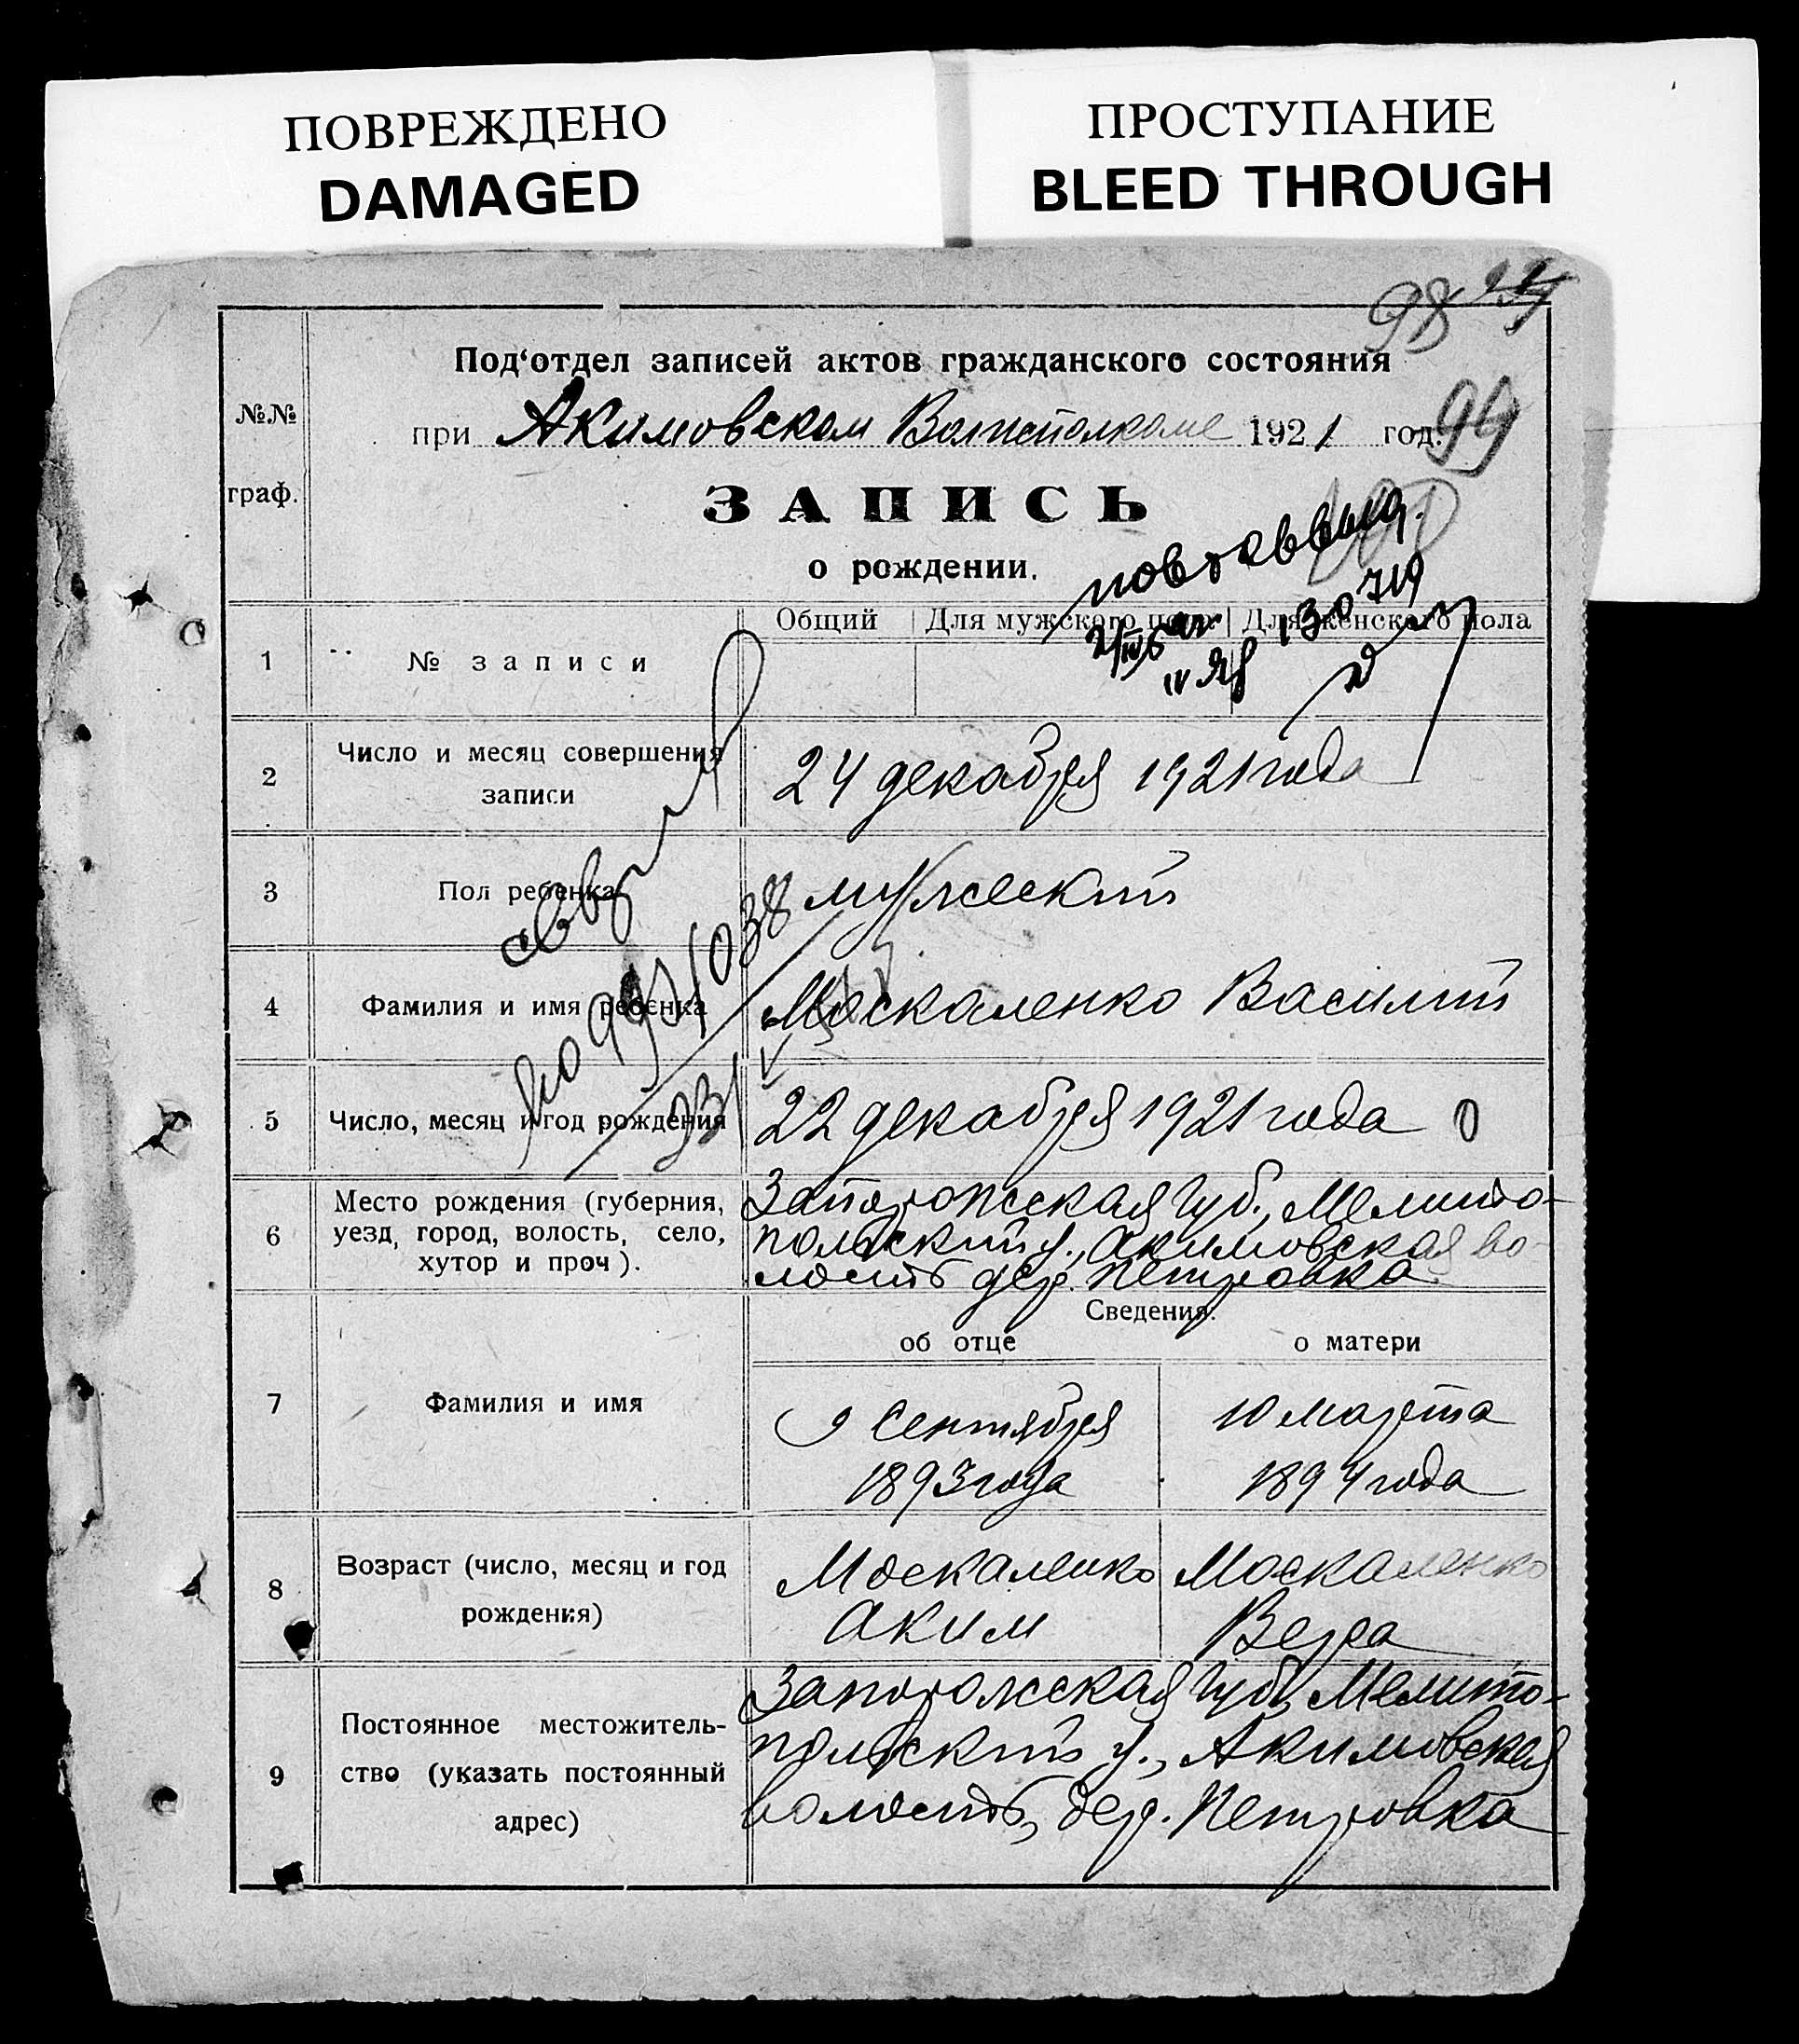 ПОВРЕЖДЕНО
DAMAGED
ПРОСТУПАНИЕ
BLEED THROUGH
98
Под‘отдел записей актов гражданского состояния
№№
граф.
при Акимовском Волисполкоме 1921 год.
99
ЗАПИСЬ
о рождении.
13 0719
Общий Для мужского пола Для женского пола
1 № записи
2 Число и месяц совершения
записи
24 декабря 1921 года
3 Пол ребенка
мужеский
4 Фамилия и имя ребенка
Москаленко Василий
5 Число, месяц и год рождения
22 декабря 1921 года
6 Место рождения (губерния,
уезд, город, волость, село,
хутор и проч).
Запорожская губ., Мелито-
польский у., Акимовская во-
лость дер. Петровка
Сведения:
об отце о матери
7 Фамилия и имя
9 Сентября
1893 года
10 марта
1894 года
8 Возраст (число, месяц и год
рождения)
Москаленко
Аким
Москаленко
Вера
9 Постоянное местожитель-
ство (указать постоянный
адрес)
Запорожская губ., Мелито-
польский у., Акимовская
волость, дер. Петровка